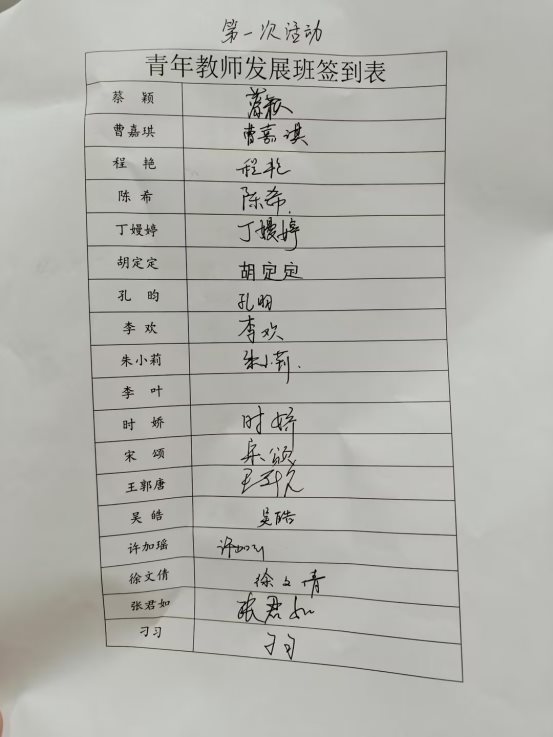 第一次活动
青年教师发展班签到表
蔡 颖 蔡颖
曹嘉琪 曹嘉琪
程 艳 程艳
陈 希 陈希.
丁嫚婷 丁嫚婷
胡定定 胡定定
孔 昀 孔昀
李 欢 李欢
朱小莉 朱小莉.
李 叶
时 娇 时娇
宋 颂 宋颂
王郭唐
吴 皓 吴皓
许加瑶
徐文倩 徐文倩
张君如 张君如
刁习 刁习